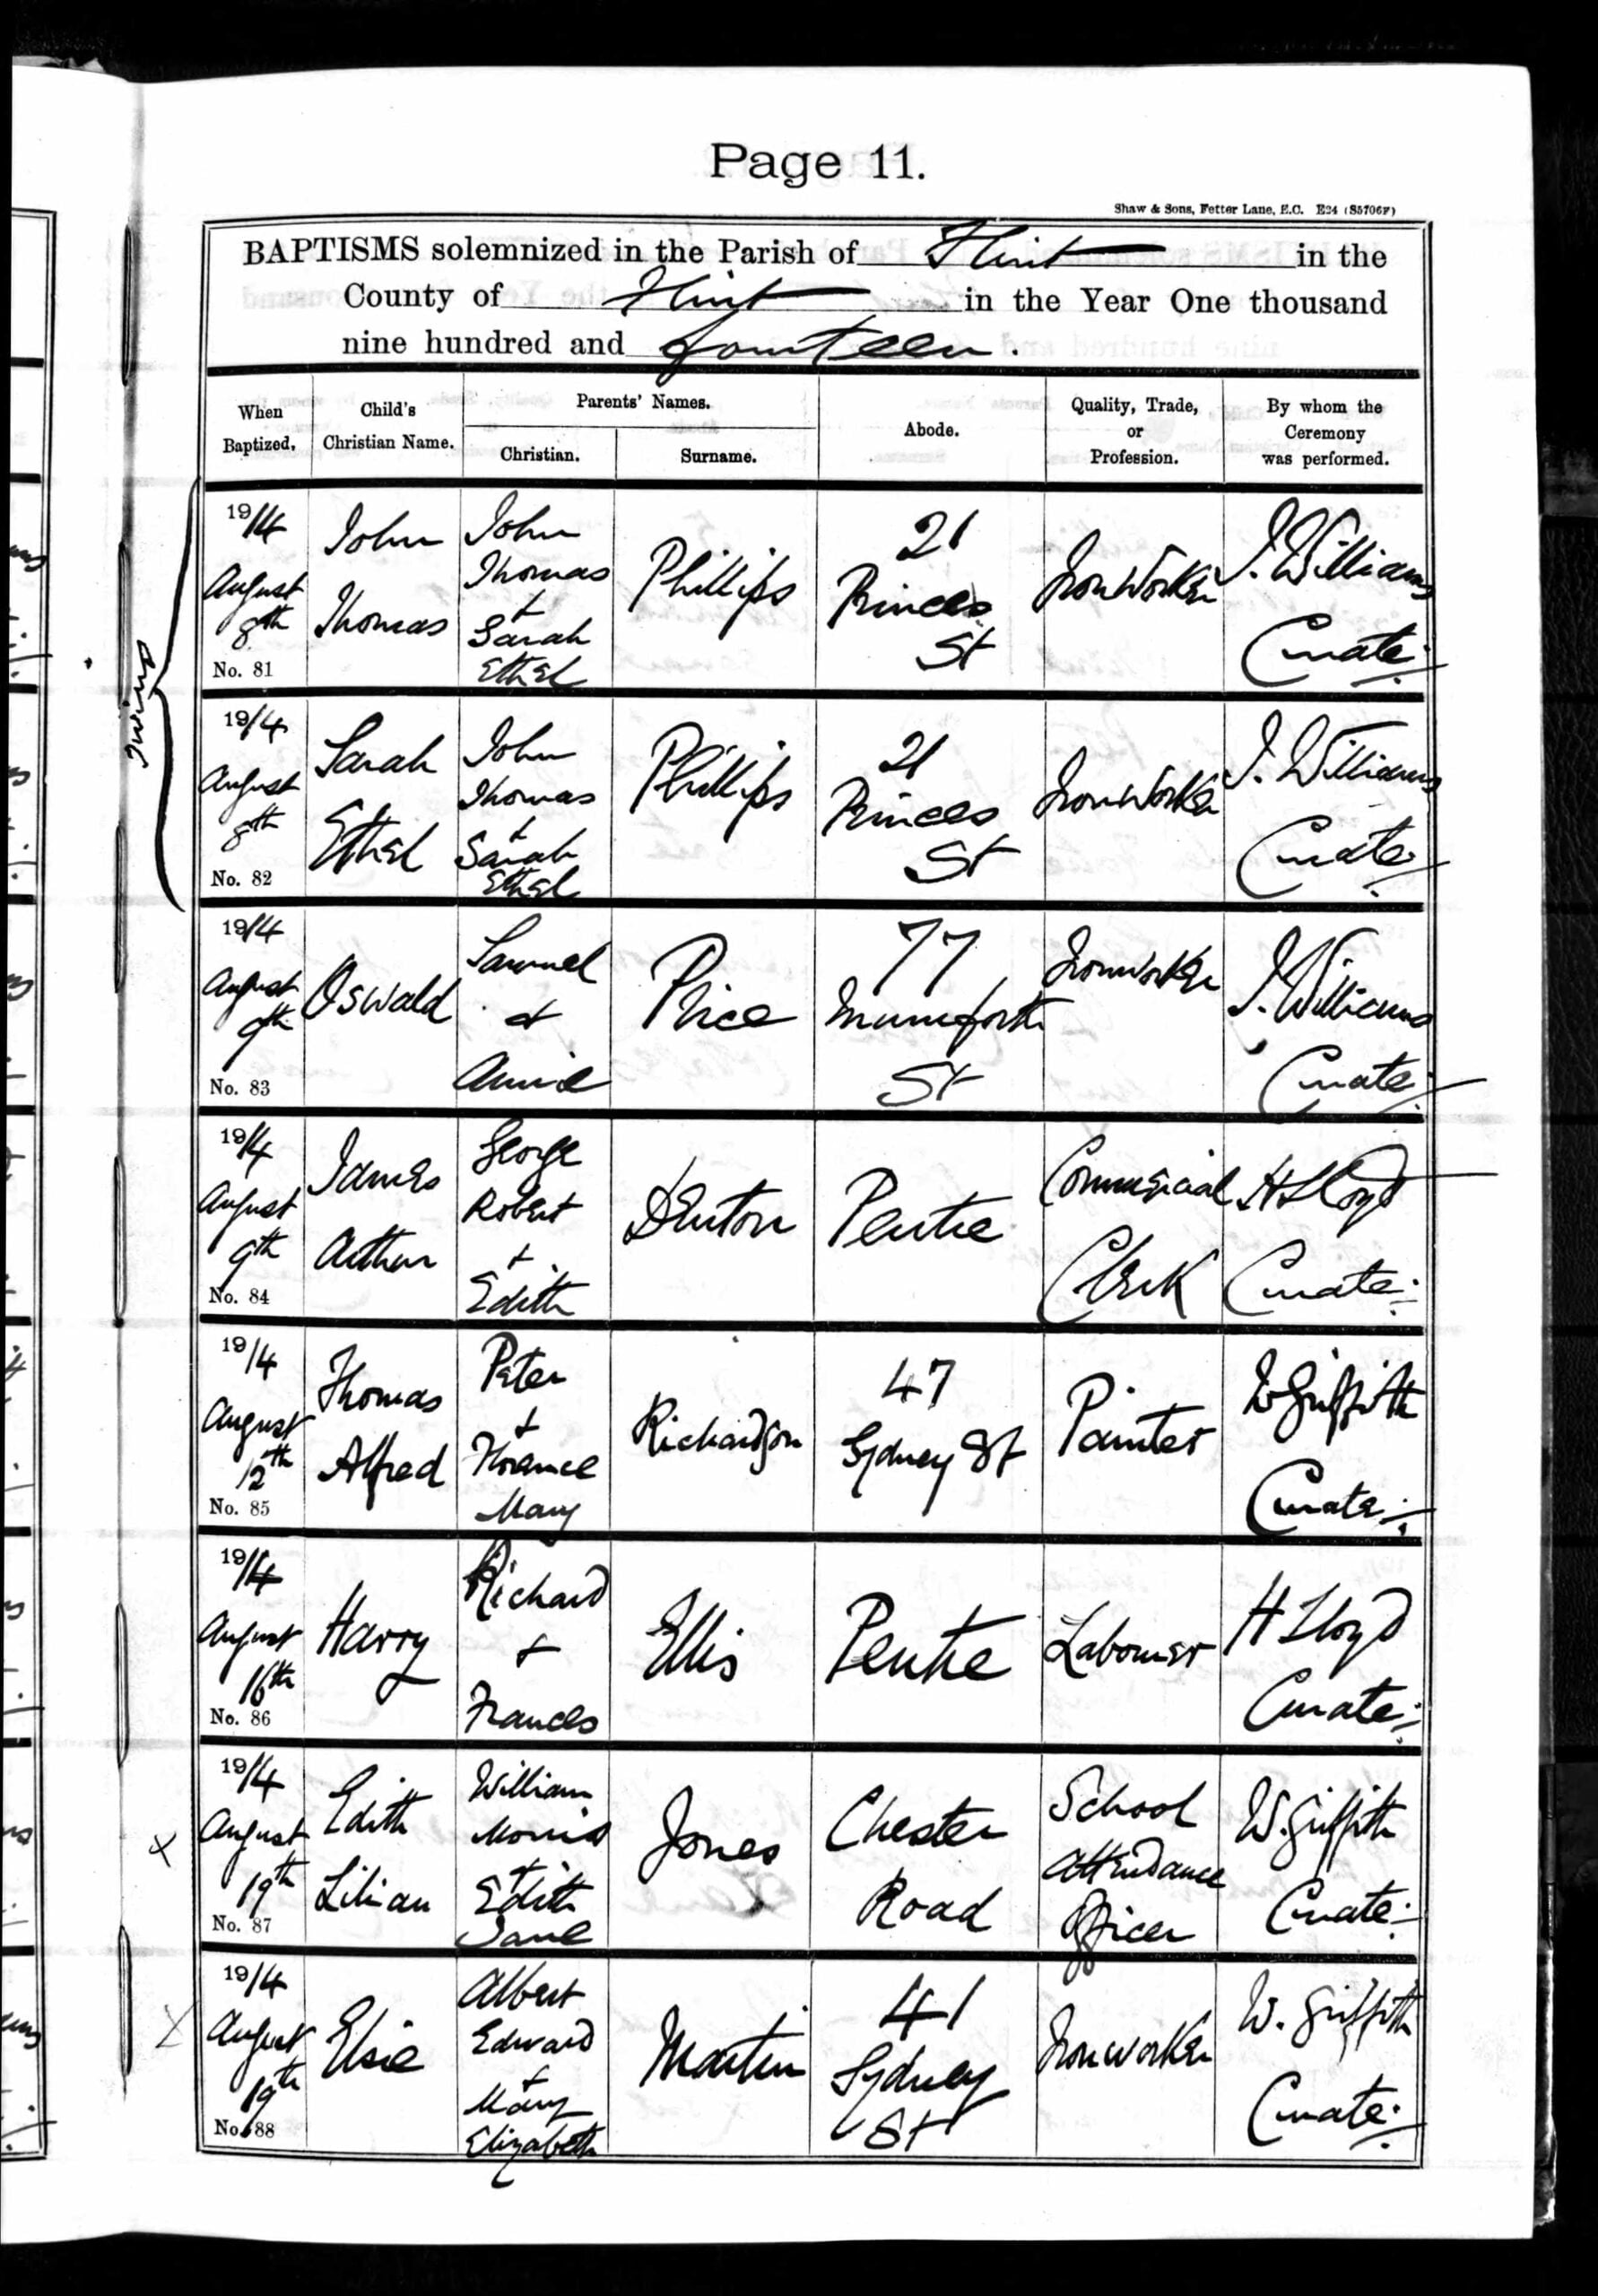 Page 11.
Shaw & Sons, Fetter Lane, E.C. E24 (S5706F)
BAPTISMS solemnized in the Parish of Flint in the
County of Flint in the Year One thousand
nine hundred and fourteen.
When Baptized.
Child's Christian Name.
Parents' Names.
Christian.
Surname.
Abode.
Quality, Trade, or Profession.
By whom the Ceremony was performed.
Twins
1914 August 8th No. 81
John Thomas
John Thomas + Sarah Ethel
Phillips
21 Princes St
Ironworker
J. Williams Curate
1914 August 8th No. 82
Sarah Ethel
John Thomas + Sarah Ethel
Phillips
21 Princes St
Ironworker
J. Williams Curate
1914 August 9th No. 83
Oswald
Samuel & Annie
Price
77 Mumforth St
Ironworker
J. Williams Curate
1914 August 9th No. 84
James Arthur
George Robert + Edith
Denton
Pentre
Commercial Clerk
H Lloyd Curate
1914 August 12th No. 85
Thomas Alfred
Peter + Florence Mary
Richardson
47 Sydney St
Painter
W Griffith Curate
1914 August 16th No. 86
Harry
Richard + Frances
Ellis
Pentre
Labourer
H Lloyd Curate
X
1914 August 19th No. 87
Edith Lilian
William Morris + Edith Jane
Jones
Chester Road
School Attendance Officer
W. Griffith Curate
X
1914 August 19th No. 88
Elsie
Albert Edward + Mary Elizabeth
Martin
41 Sydney St
Ironworker
W. Griffith Curate